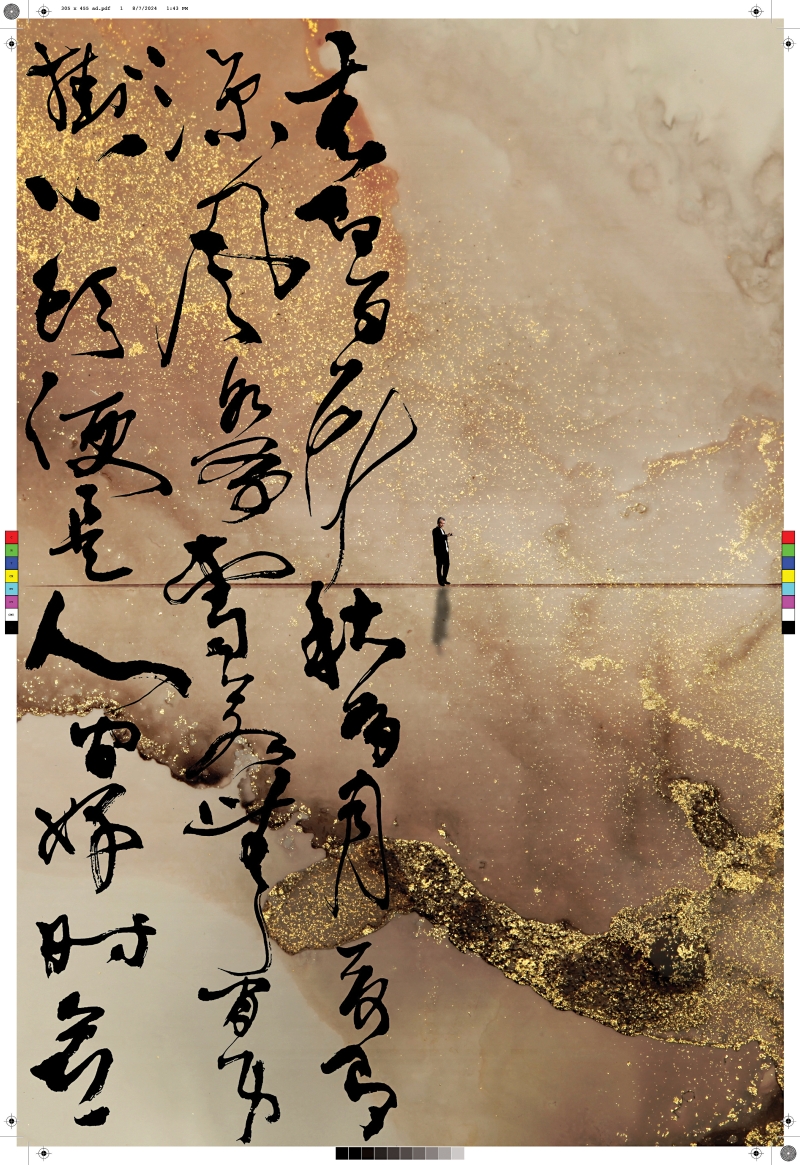 305 x 455 ad.pdf 1 8/7/2024 1:43 PM
春有百花秋有月夏有
涼風冬有雪若無閒事
掛心頭便是人間好時節